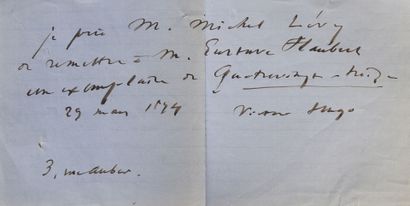 je prie M. Michel Lévy
de remettre à M. Gustave Flaubert
un exemplaire de Quatrevingt-treize
29 mars 1874 Victor Hugo
3, rue Auber.